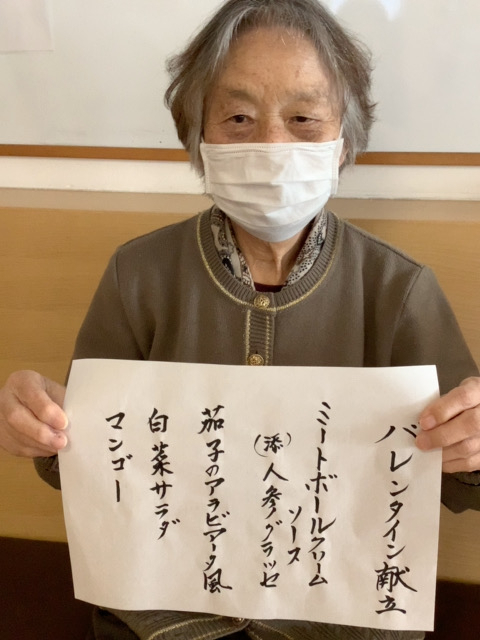 バレンタイン献立
ミートボールクリーム
ソース
(添)人参グラッセ
茄子のアラビアータ風
白菜サラダ
マンゴー